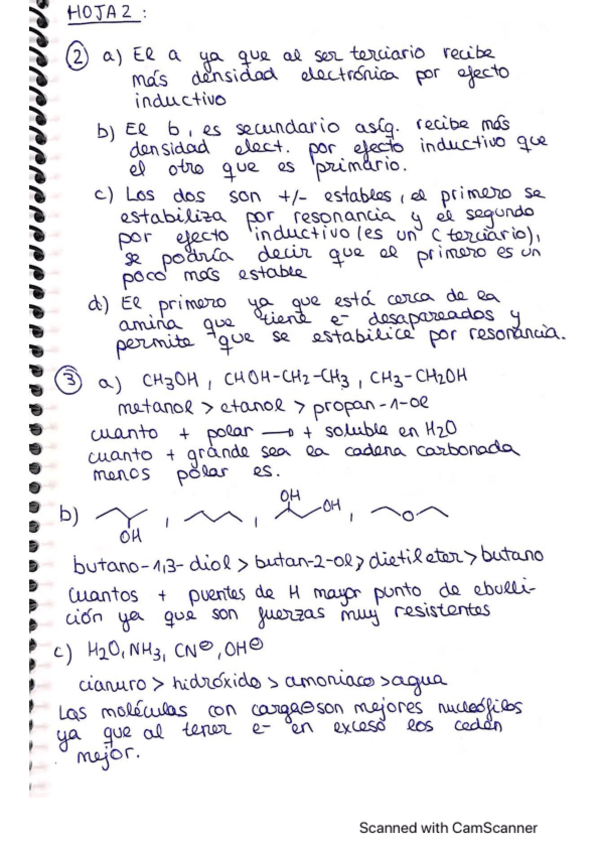 HOJA 2 :
② a) El a ya que al ser terciario recibe
más densidad electrónica por efecto
inductivo
b) El b, es secundario asíq. recibe más
densidad elect. por efecto inductivo que
el otro que es primario.
c) Los dos son +/- estables, el primero se
estabiliza por resonancia y el segundo
por efecto inductivo (es un C terciario),
se podría decir que el primero es un
poco más estable
d) El primero ya que está cerca de la
amina que tiene e- desapareados y
permite que se estabilice por resonancia.
③ a) CH3OH, CHOH-CH2-CH3, CH3-CH2OH
metanol > etanol > propan-1-ol
cuanto + polar → + soluble en H2O
cuanto + grande sea la cadena carbonada
menos polar es.
b) OH , , OH OH , O
butano-1,3-diol > butan-2-ol > dietileter > butano
Cuantos + puentes de H mayor punto de ebulli-
ción ya que son fuerzas muy resistentes
c) H2O, NH3, CN⊖, OH⊖
cianuro > hidróxido > amoniaco > agua
Las moléculas con carga⊖ son mejores nucleófilos
ya que al tener e- en exceso los ceden
mejor.
Scanned with CamScanner